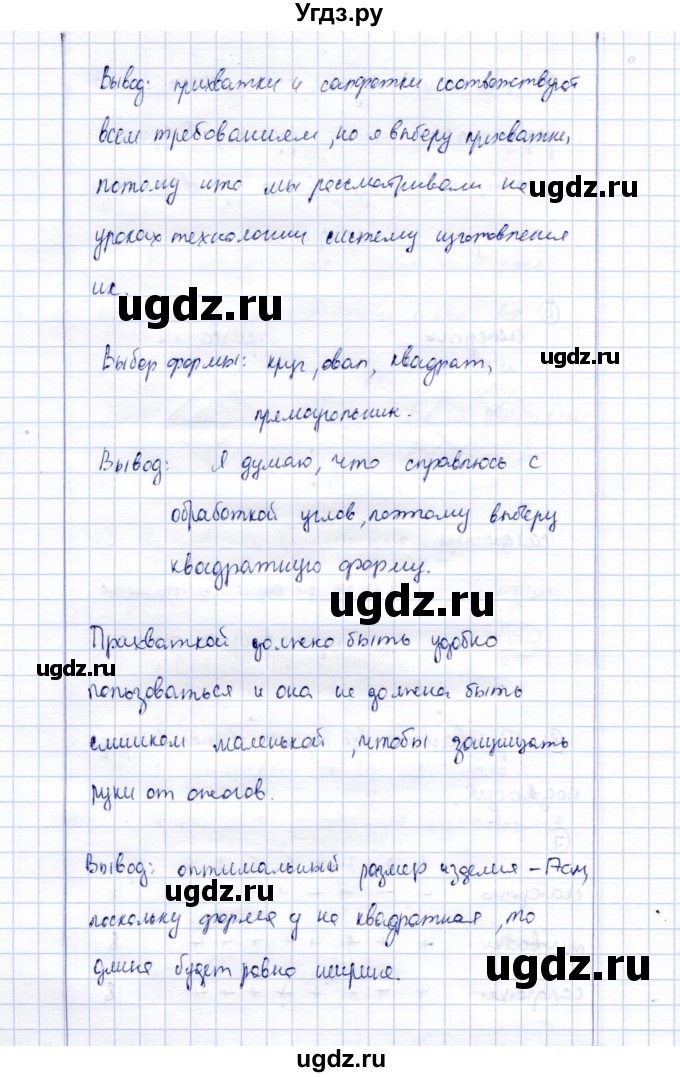 Угдз.ру
Вывод: прихватки и салфетки соответствуют
всем требованиям, но я выберу прихватки,
потому что мы рассматривали на
ugdz.ru
уроках технологии систему изготовления
их.
ugdz.ru
Выбор формы: круг, овал, квадрат,
ugdz.ru
прямоугольник.
Вывод: Я думаю, что справлюсь с
обработкой углов, поэтому выберу
квадратную форму.
ugdz.ru
Прихваткой должно быть удобно
ugdz.ru
пользоваться и она не должна быть
слишком маленькой, чтобы защищать
руки от ожогов.
Вывод: оптимальный размер изделия - 17см,
ugdz.ru
поскольку форма у на квадратная, то
длина будет равна ширине.
ugdz.ru
ugdz.ru